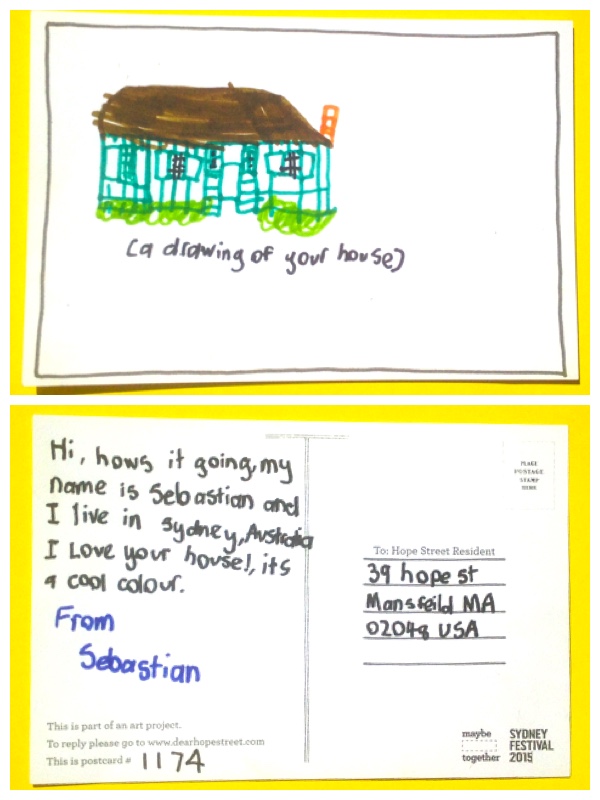 (a drawing of your house)
Hi, hows it going, my
name is Sebastian and
I live in Sydney, Australia
I Love your house!, its
a cool colour.
From
Sebastian
This is part of an art project.
To reply please go to www.dearhopestreet.com
This is postcard # 1174
PLACE
POSTAGE
STAMP
HERE
To: Hope Street Resident
39 hope st
Mansfeild MA
02048 USA
maybe
together
SYDNEY
FESTIVAL
2015